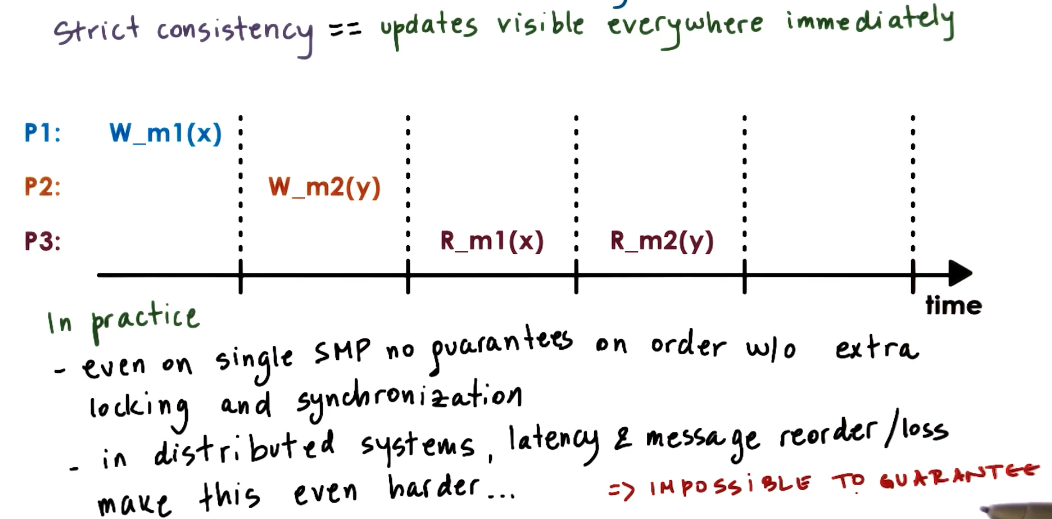 Strict consistency == updates visible everywhere immediately
P1: W_m1(x)
P2: W_m2(y)
P3: R_m1(x) R_m2(y)
time
In practice
- even on single SMP no guarantees on order w/o extra
locking and synchronization
- in distributed systems, latency & message reorder/loss
make this even harder...
=> IMPOSSIBLE TO GUARANTEE